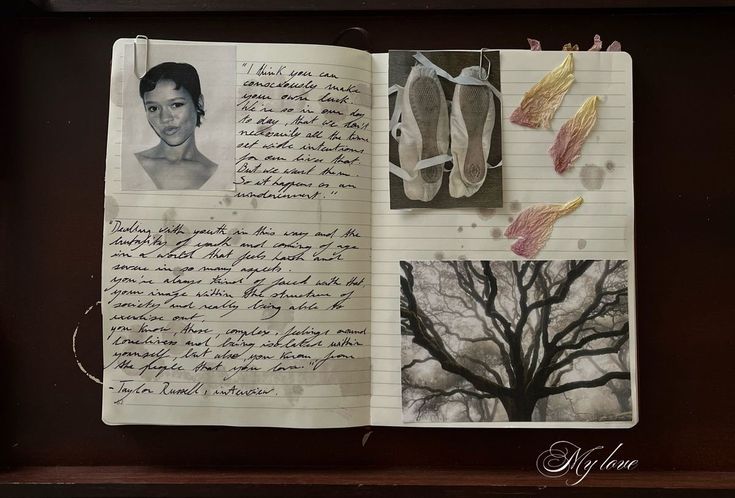 "I think you can
consciously make
your own luck.
We're so in our day
to day, that we don't
necessarily all the time
set wide intentions
for our lives that.
But we want them.
So it happens as an
"Dealing with youth in this way and the
brutality of youth and coming of age
in a world that feels harsh and
severe in so many aspects.
you've always kind of faced with that,
your image within the structure of
society and really being able to
out.
you know, those, complex, feelings around
loneliness and being isolated within
yourself, but also, you know, from
the people that you love."
- Taylor Russell, interview.
My love